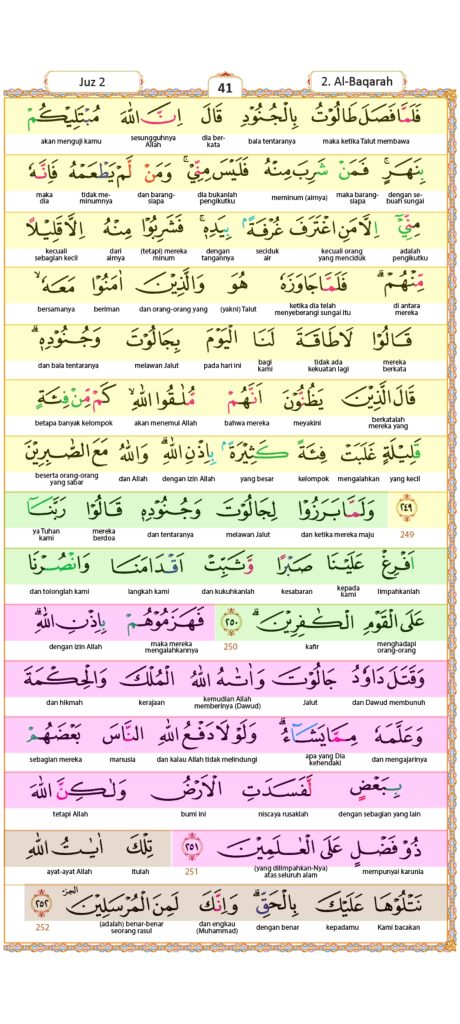 Juz 2
41
2. Al-Baqarah
فَلَمَّا فَصَلَ طَالُوْتُ بِالْجُنُوْدِ قَالَ اِنَّ اللّٰهَ مُبْتَلِيْكُمْ
maka ketika Talut membawa bala tentaranya dia ber-kata sesungguhnya Allah akan menguji kamu
بِنَهَرٍۚ فَمَنْ شَرِبَ مِنْهُ فَلَيْسَ مِنِّيْۚ وَمَنْ لَّمْ يَطْعَمْهُ فَاِنَّهٗ
dengan se-buah sungai maka barang-siapa meminum (airnya) dia bukanlah pengikutku dan barang-siapa tidak me-minumnya maka dia
مِنِّيْٓ اِلَّا مَنِ اغْتَرَفَ غُرْفَةً ۢبِيَدِهٖۚ فَشَرِبُوْا مِنْهُ اِلَّا قَلِيْلًا
adalah pengikutku kecuali orang yang menciduk seciduk air dengan tangannya (tetapi) mereka minum dari airnya kecuali sebagian kecil
مِّنْهُمْۗ فَلَمَّا جَاوَزَهٗ هُوَ وَالَّذِيْنَ اٰمَنُوْا مَعَهٗۙ
di antara mereka ketika dia telah menyeberangi sungai itu (yakni) Talut dan orang-orang yang beriman bersamanya
قَالُوْا لَا طَاقَةَ لَنَا الْيَوْمَ بِجَالُوْتَ وَجُنُوْدِهٖۗ
mereka berkata tidak ada kekuatan lagi bagi kami pada hari ini melawan Jalut dan bala tentaranya
قَالَ الَّذِيْنَ يَظُنُّوْنَ اَنَّهُمْ مُّلٰقُوا اللّٰهِۙ كَمْ مِّنْ فِئَةٍ
berkatalah mereka yang meyakini bahwa mereka akan menemui Allah betapa banyak kelompok
قَلِيْلَةٍ غَلَبَتْ فِئَةً كَثِيْرَةً ۢبِاِذْنِ اللّٰهِۗ وَاللّٰهُ مَعَ الصّٰبِرِيْنَ
yang kecil mengalahkan kelompok yang besar dengan izin Allah dan Allah beserta orang-orang yang sabar
٢٤٩ وَلَمَّا بَرَزُوْا لِجَالُوْتَ وَجُنُوْدِهٖ قَالُوْا رَبَّنَآ
249 dan ketika mereka maju melawan Jalut dan tentaranya mereka berdoa ya Tuhan kami
اَفْرِغْ عَلَيْنَا صَبْرًا وَّثَبِّتْ اَقْدَامَنَا وَانْصُرْنَا
limpahkanlah kepada kami kesabaran dan kukuhkanlah langkah kami dan tolonglah kami
عَلَى الْقَوْمِ الْكٰفِرِيْنَۗ ٢٥٠ فَهَزَمُوْهُمْ بِاِذْنِ اللّٰهِۗ
menghadapi orang-orang kafir 250 maka mereka mengalahkannya dengan izin Allah
وَقَتَلَ دَاوٗدُ جَالُوْتَ وَاٰتٰىهُ اللّٰهُ الْمُلْكَ وَالْحِكْمَةَ
dan Dawud membunuh Jalut kemudian Allah memberinya (Dawud) kerajaan dan hikmah
وَعَلَّمَهٗ مِمَّا يَشَاۤءُۗ وَلَوْلَا دَفْعُ اللّٰهِ النَّاسَ بَعْضَهُمْ
dan mengajarinya apa yang Dia kehendaki dan kalau Allah tidak melindungi manusia sebagian mereka
بِبَعْضٍ لَّفَسَدَتِ الْاَرْضُ وَلٰكِنَّ اللّٰهَ
dengan sebagian yang lain niscaya rusaklah bumi ini tetapi Allah
ذُوْ فَضْلٍ عَلَى الْعٰلَمِيْنَ ٢٥١ تِلْكَ اٰيٰتُ اللّٰهِ
mempunyai karunia (yang dilimpahkan-Nya) atas seluruh alam 251 Itulah ayat-ayat Allah
نَتْلُوْهَا عَلَيْكَ بِالْحَقِّۗ وَاِنَّكَ لَمِنَ الْمُرْسَلِيْنَ ٢٥٢
Kami bacakan kepadamu dengan benar dan engkau (Muhammad) (adalah) benar-benar seorang rasul 252